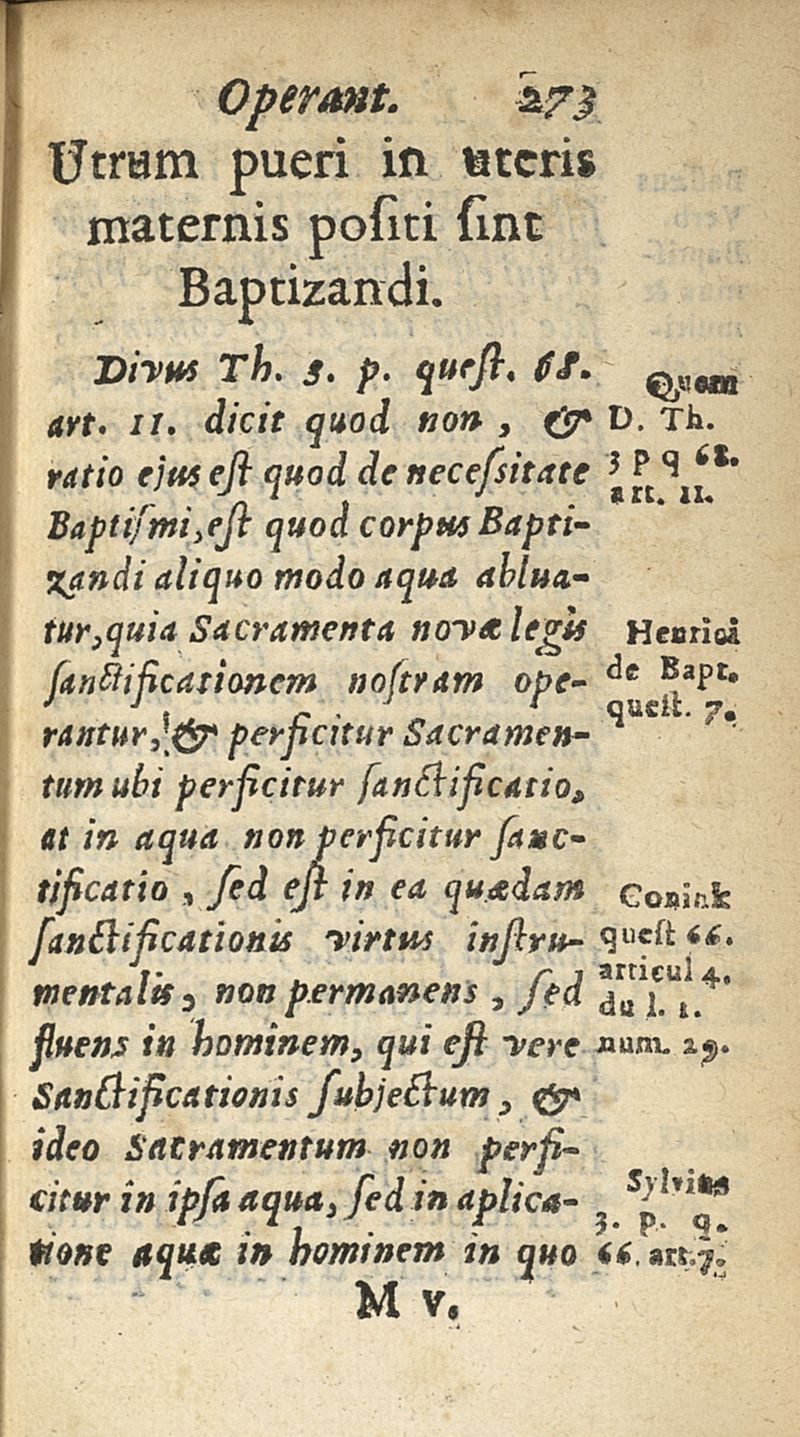 Operant. 273
Utrum pueri in uteris
maternis poſiti ſint
Baptizandi.
Divus Th. 3. p. queſt. 68.
art. 11. dicit quod non, &
ratio ejus eſt quod de neceſsitate
Baptiſmi, eſt quod corpus Bapti-
zandi aliquo modo aqua ablua-
tur, quia Sacramenta novæ legis
ſanctificationem noſtram ope-
rantur, & perficitur Sacramen-
tum ubi perficitur ſanctificatio,
at in aqua non perficitur ſanc-
tificatio, ſed eſt in ea quædam
ſanctificationis virtus inſtru-
mentalis, non permanens, ſed
fluens in hominem, qui eſt vere
Sanctificationis ſubjectum, &
ideo Sacramentum non perfi-
citur in ipſa aqua, ſed in aplica-
tione aquæ in hominem in quo
M v.
Quem
D. Th.
3 p q 68.
art. 11.
Henrici
de Bapt.
queſt. 7.
Conink
queſt 66.
articul 4.
du l. 1.
num. 29.
Sylvius
3. p. q.
66. art. 7.